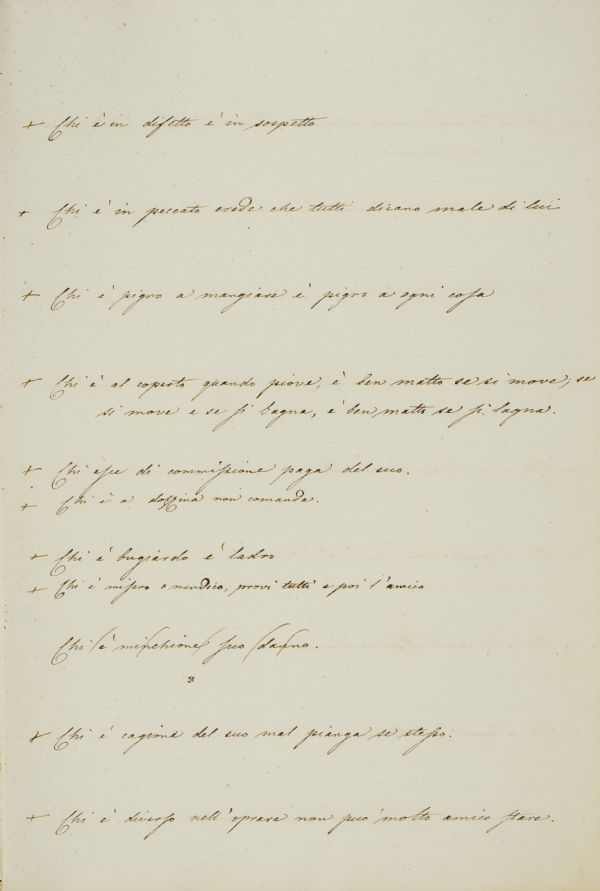 + Chi è in difetto è in sospetto
+ Chi è in peccato crede che tutti dicano male di lui
+ Chi è pigro a mangiare è pigro a ogni cosa
+ Chi è al coperto quando piove, è ben matto se si move; se
si move e se si bagna, è ben matto se si lagna.
+ Chi esce di commissione paga del suo.
+ Chi è a dozzina non comanda.
+ Chi è bugiardo è ladro
+ Chi è misero e mendico, provi tutti e poi l'amico
Chi è minchione suo danno.
+ Chi è cagione del suo mal pianga se stesso.
+ Chi è diverso nell'oprare non può molto amico stare.